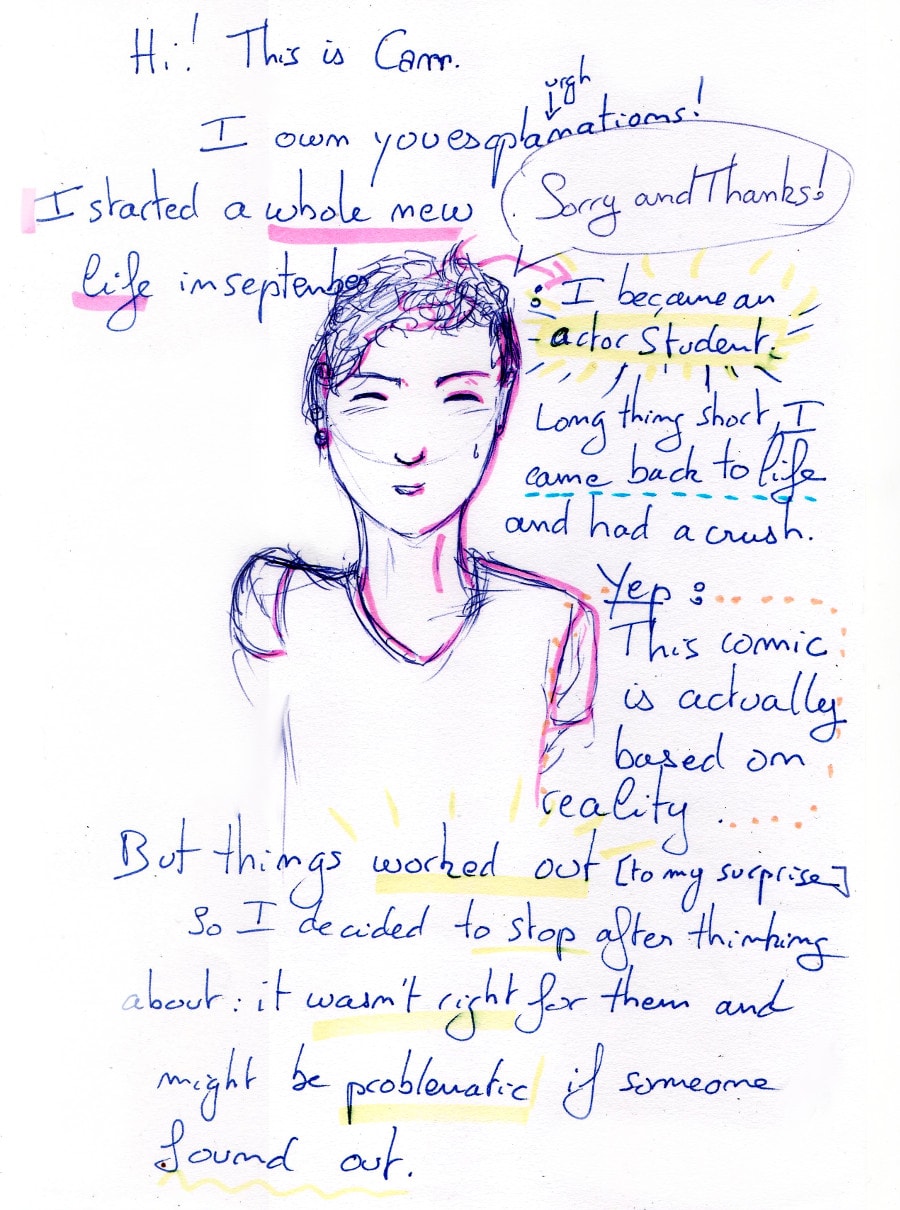 Hi! This is Cam.
urgh
I own you esplanations!
Sorry and Thanks!
I started a whole new
life in september
: I became an
actor student.
Long thing short, I
came back to life
and had a crush.
Yep :
This comic
is actually
based on
reality.
But things worked out [to my surprise]
So I decided to stop after thinking
about : it wasn't right for them and
might be problematic if someone
found out.